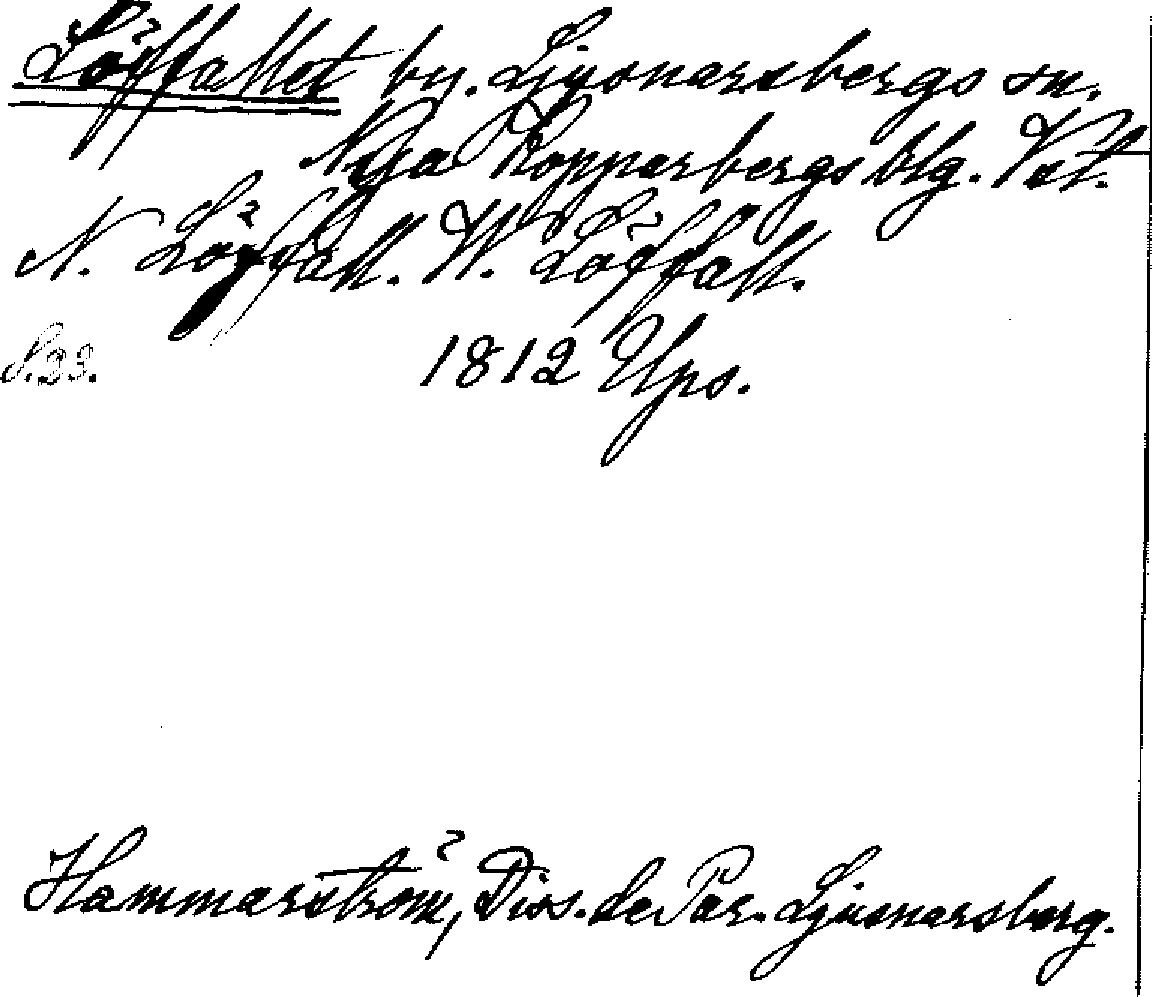 Löffallet by. Ljusnarsbergs sn.
Nya Kopparbergs blg. Vstl.
N. Löffall. W. Löffall.
S.23. 1812 Ups.
Hammarström, Diss. de Par. Ljusnarsberg.